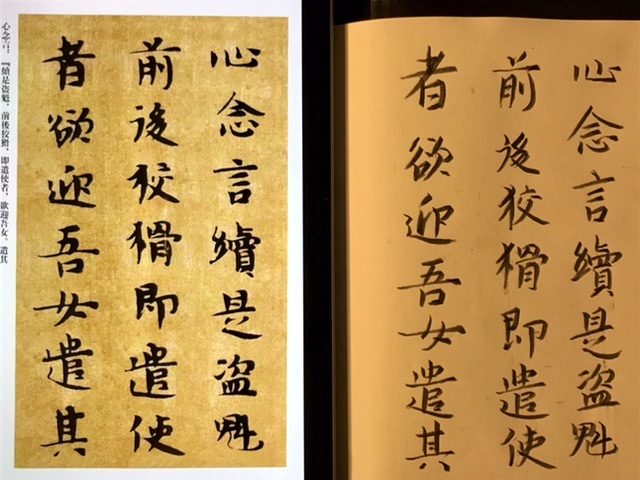 心念言：『續是盜魁，前後狡猾，即遣使者，欲迎吾女。遣其
心念言續是盜魁
前後狡猾即遣使
者欲迎吾女遣其
心念言續是盜魁
前後狡猾即遣使
者欲迎吾女遣其